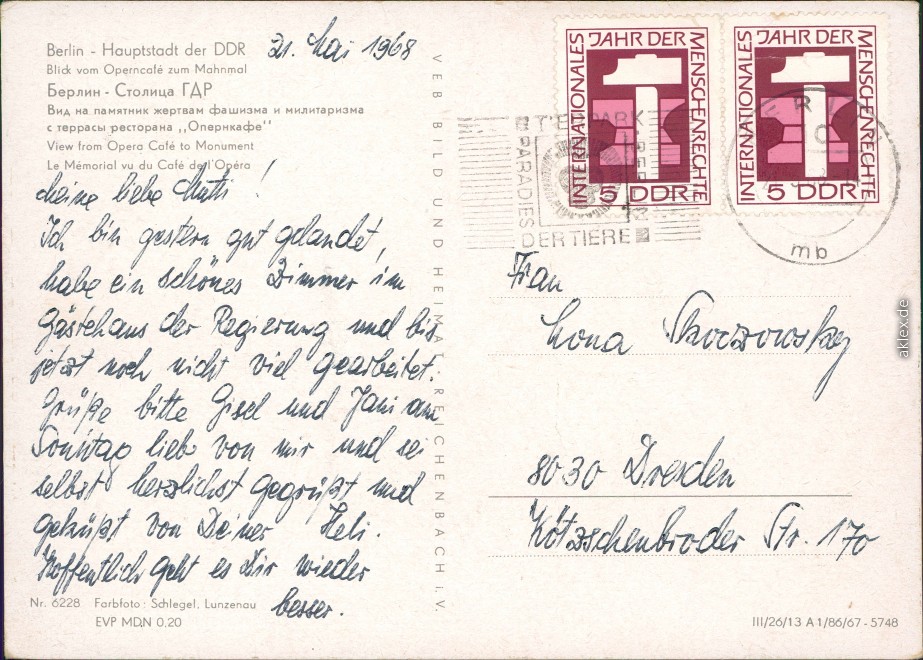 Berlin - Hauptstadt der DDR
21. Mai 1968
Blick vom Operncafé zum Mahnmal
Берлин - Столица ГДР
Вид на памятник жертвам фашизма и милитаризма
с террасы ресторана ,,Опернкафе‘‘
View from Opera Café to Monument
Le Mémorial vu du Café de l'Opéra
Meine liebe Mutti!
Ich bin gestern gut gelandet,
habe ein schönes Zimmer im
Gästehaus der Regierung und bis
jetzt noch nicht viel gearbeitet.
Grüße bitte Gisel und Jani am
Sonntag lieb von mir und sei
selbst herzlichst gegrüßt und
geküßt von Deiner Heli.
Hoffentlich geht es Dir wieder
besser.
Nr. 6228 Farbfoto: Schlegel, Lunzenau
EVP MDN 0,20
VEB BILD UND HEIMAT REICHENBACH I.V.
INTERNATIONALES JAHR DER MENSCHENRECHTE
5 DDR
INTERNATIONALES JAHR DER MENSCHENRECHTE
5 DDR
TIERPARK
BERLIN
PARADIES
DER TIERE
mb
Frau
Lona
8030 Dresden
Kötzschenbroder Str. 170
III/26/13 A 1/86/67 - 5748
aklex.de